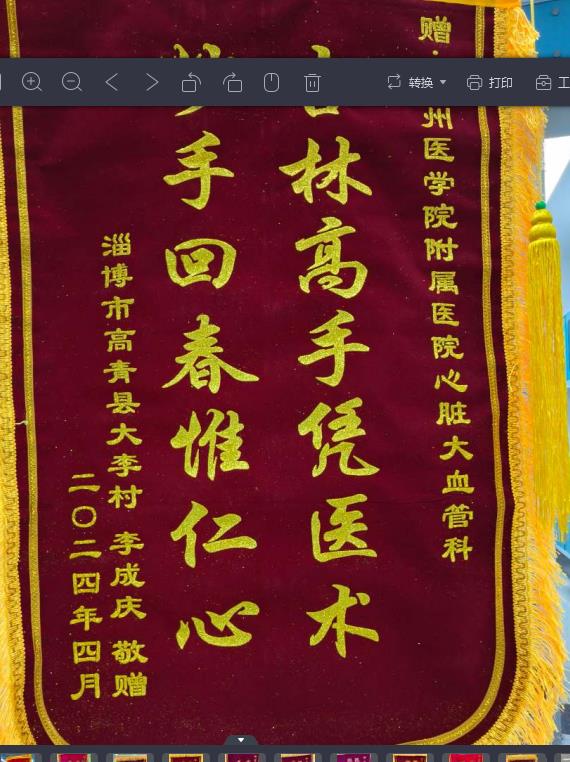 转换 打印 工
赠
州医学院附属医院心脏大血管科
林高手凭医术
手回春惟仁心
淄博市高青县大李村 李成庆 敬赠
二〇二四年四月